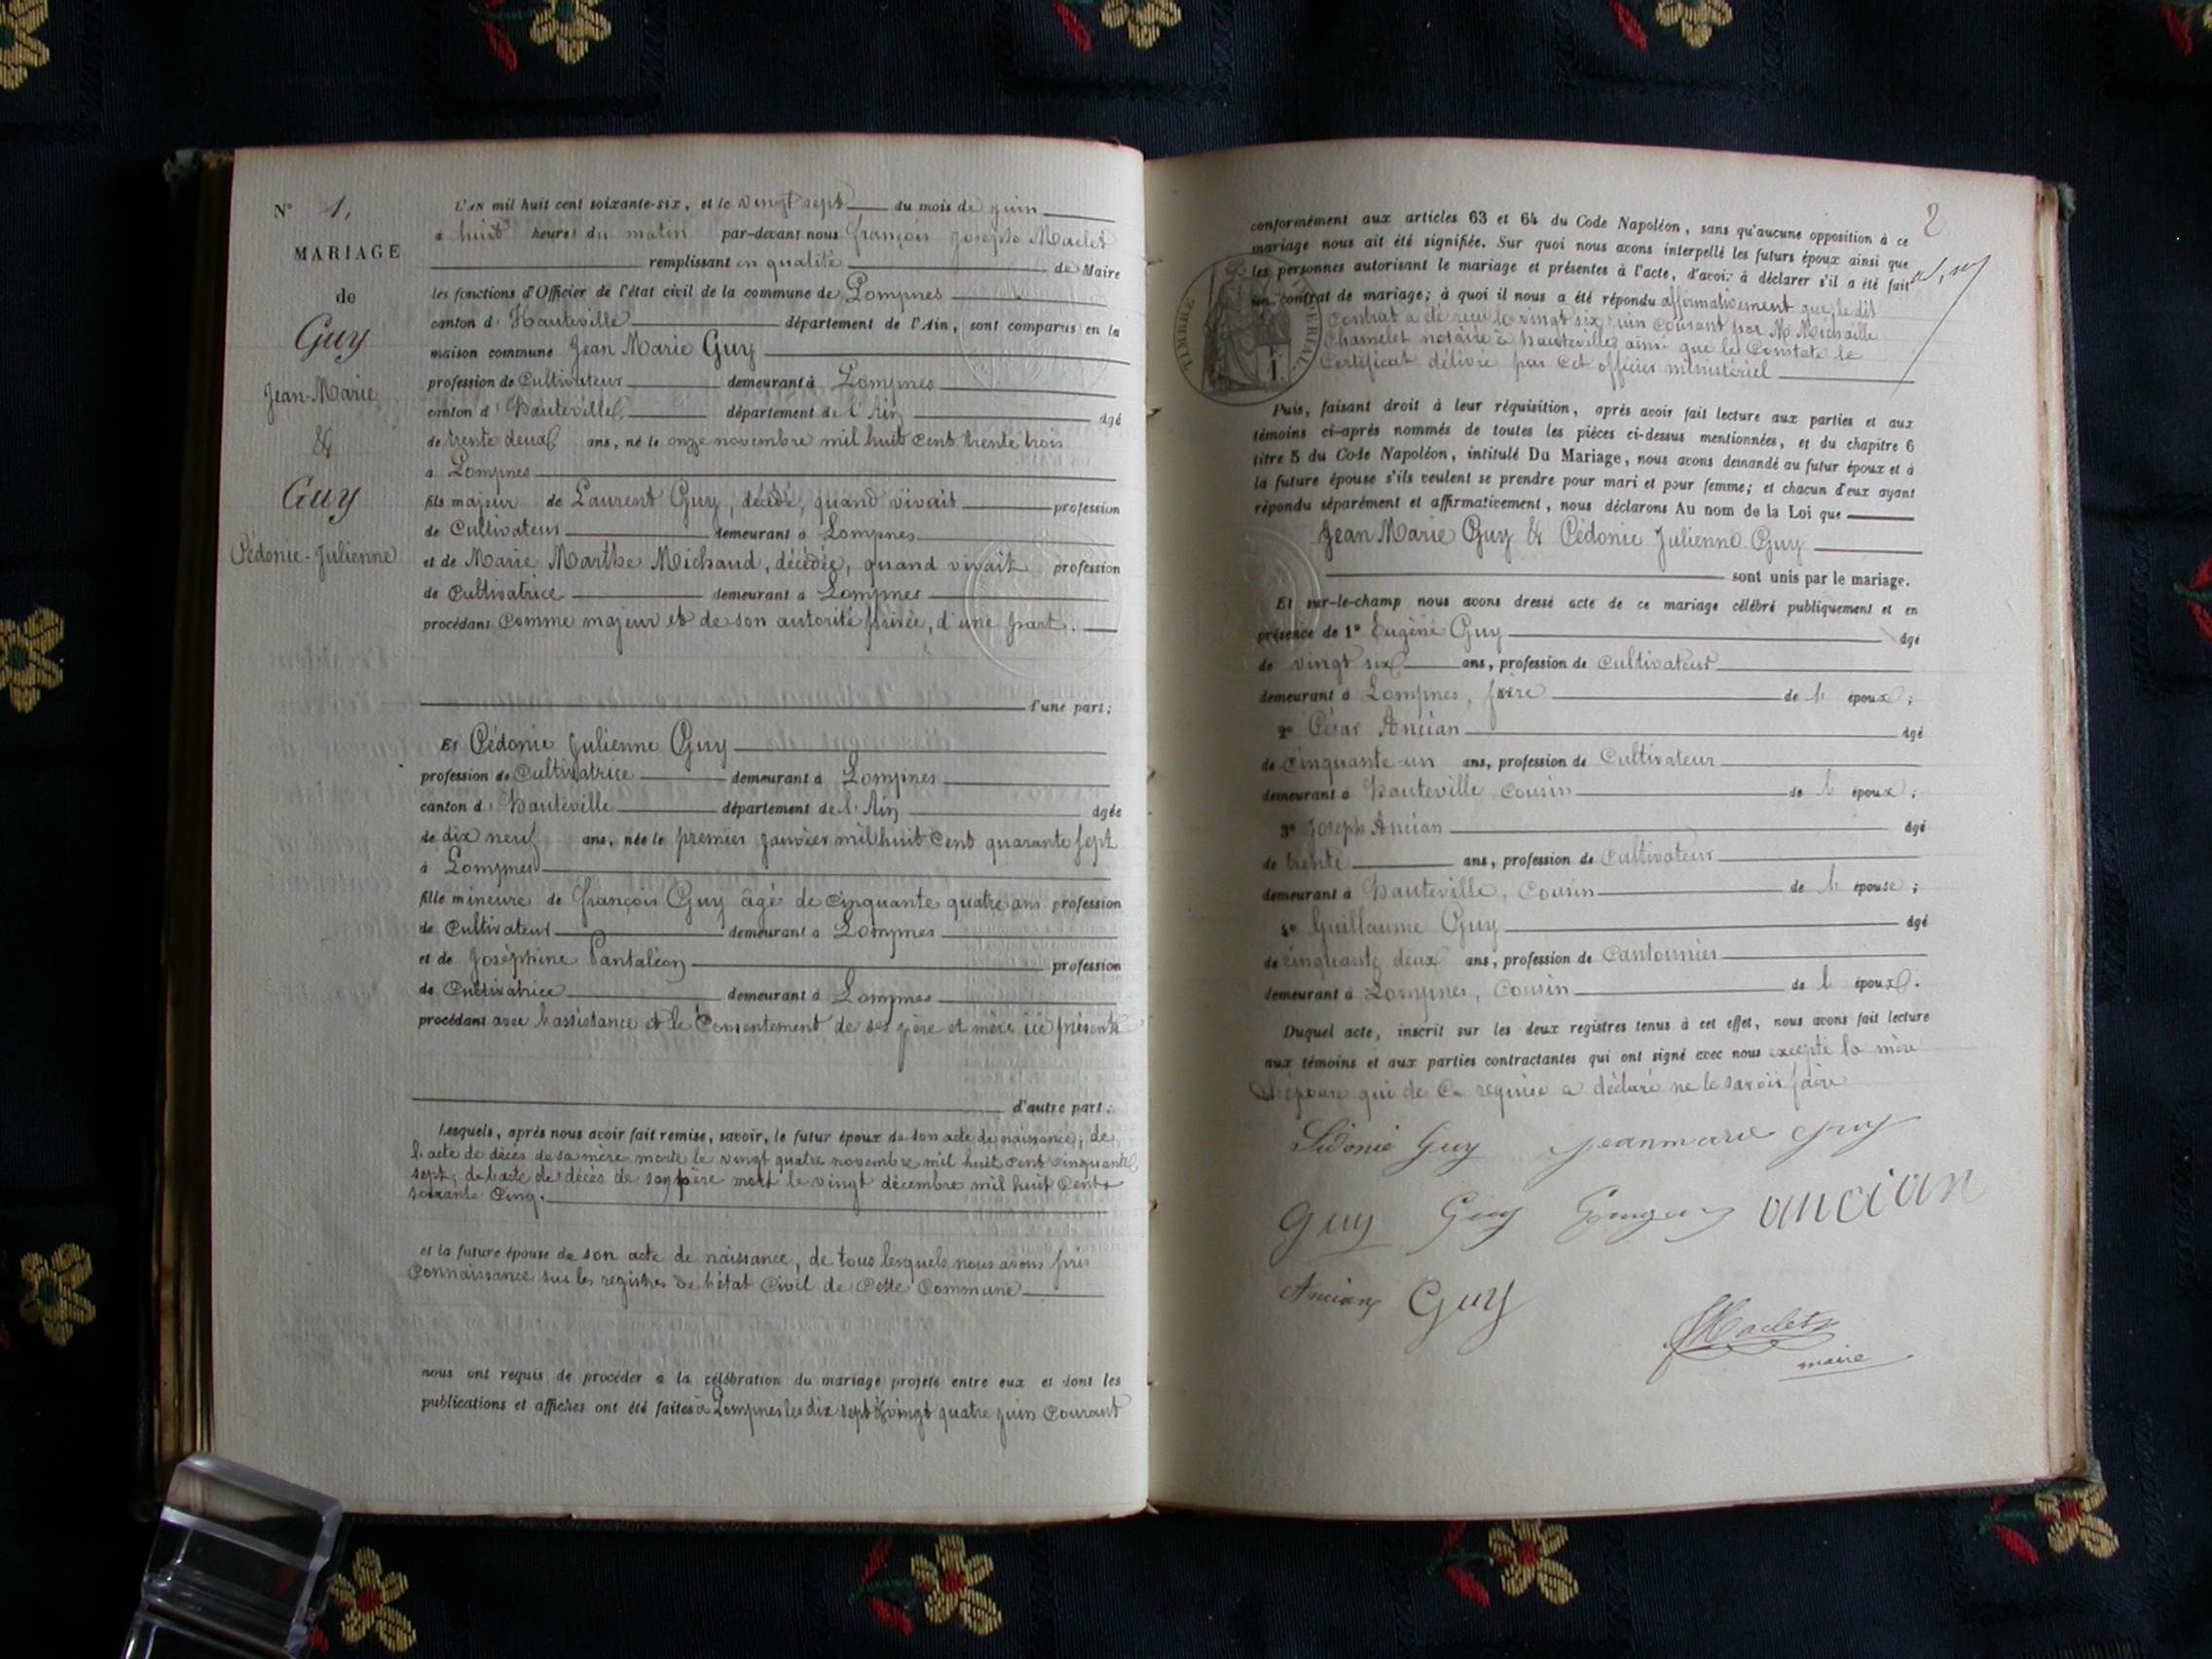 N° 1.
MARIAGE
de
Guy
Jean-Marie
&
Guy
Cédonie-Julienne
L'AN mil huit cent soixante-six, et le vingt sept du mois de juin
à huit heures du matin par-devant nous françois Joseph Maclet
remplissant en qualité de Maire
les fonctions d'Officier de l'état civil de la commune de Lompnes
canton d'Hauteville département de l'Ain, sont comparus en la
maison commune Jean Marie Guy
profession de Cultivateur demeurant à Lompnes
canton d'Hauteville département de l'Ain âgé
de trente deux ans, né le onze novembre mil huit cent trente trois
à Lompnes
fils majeur de Laurent Guy, décédé, quand vivait profession
de Cultivateur demeurant à Lompnes
et de Marie Marthe Michaud, décédée, quand vivait profession
de Cultivatrice demeurant à Lompnes
procédant comme majeur et de son autorité privée, d'une part.
d'une part;
Et Cédonie Julienne Guy
profession de Cultivatrice demeurant à Lompnes
canton d'Hauteville département de l'Ain âgée
de dix neuf ans, née le premier janvier mil huit cent quarante sept
à Lompnes
fille mineure de françois Guy âgé de cinquante quatre ans profession
de Cultivateur demeurant à Lompnes
et de Joséphine Pantaléon profession
de Cultivatrice demeurant à Lompnes
procédant avec l'assistance et le Consentement de ses père et mère ici présents
d'autre part;
Lesquels, après nous avoir fait remise, savoir, le futur époux de son acte de naissance, de
l'acte de décès de sa mère morte le vingt quatre novembre mil huit cent cinquante
sept, de l'acte de décès de son père mort le vingt décembre mil huit cent
soixante cinq.
et la future épouse de son acte de naissance, de tous lesquels nous avons pris
Connaissance sur les registres de l'état Civil de Cette Commune
nous ont requis de procéder à la célébration du mariage projeté entre eux et dont les
publications et affiches ont été faites à Lompnes les dix sept & vingt quatre juin Courant
2
conformément aux articles 63 et 64 du Code Napoléon, sans qu'aucune opposition à ce
mariage nous ait été signifiée. Sur quoi nous avons interpellé les futurs époux ainsi que
les personnes autorisant le mariage et présentes à l'acte, d'avoir à déclarer s'il a été fait
un contrat de mariage; à quoi il nous a été répondu affirmativement que le dit
Contrat a été reçu le vingt six juin courant par Me Michaille
Chamelet notaire à hauteville ainsi que le Constate le
Certificat délivré par cet officier ministériel
TIMBRE IMPERIAL
Puis, faisant droit à leur réquisition, après avoir fait lecture aux parties et aux
témoins ci-après nommés de toutes les pièces ci-dessus mentionnées, et du chapitre 6
titre 5 du Code Napoléon, intitulé Du Mariage, nous avons demandé au futur époux et à
la future épouse s'ils veulent se prendre pour mari et pour femme; et chacun d'eux ayant
répondu séparément et affirmativement, nous déclarons Au nom de la Loi que
Jean Marie Guy & Cédonie Julienne Guy
sont unis par le mariage.
Et sur-le-champ nous avons dressé acte de ce mariage célébré publiquement et en
présence de 1° Eugène Guy âgé
de vingt six ans, profession de Cultivateur
demeurant à Lompnes, frère de l' époux;
2° César Ancian âgé
de cinquante un ans, profession de Cultivateur
demeurant à Hauteville cousin de l' époux;
3° Joseph Ancian âgé
de trente ans, profession de Cultivateur
demeurant à Hauteville, Cousin de l' épouse;
4° Guillaume Guy âgé
de cinquante deux ans, profession de Cantonnier
demeurant à Lompnes, Cousin de l' époux.
Duquel acte, inscrit sur les deux registres tenus à cet effet, nous avons fait lecture
aux témoins et aux parties contractantes qui ont signé avec nous excepté la mère
d'épouse qui de Ce requise a déclaré ne le savoir faire
Sidonie Guy Jeanmarie Guy
Guy Guy ancian
Ancian Guy
Maclet
maire